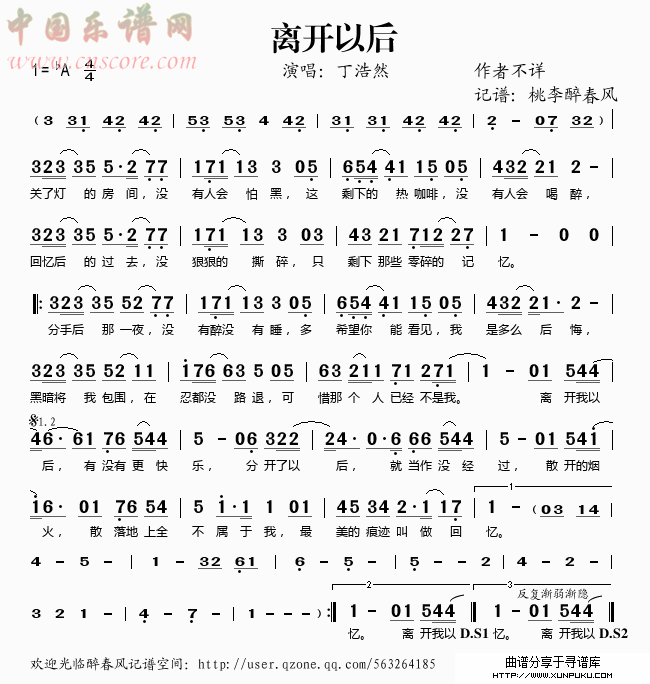 中国乐谱网
www.cnscore.com
离开以后
1=♭A 4/4
演唱：丁浩然
作者不详
记谱：桃李醉春风
(3 31 42 42 | 53 53 4 42 | 31 31 42 42 | 2 - 07 32) |
323 35 5·2 77 | 171 13 3 05 | 654 41 15 05 | 432 21 2 - |
关了灯 的 房 间，没 有人会 怕 黑，这 剩下的 热 咖啡，没 有人会 喝 醉，
323 35 5·2 77 | 171 13 3 03 | 43 21 712 27 | 1 - 0 0
回忆后 的 过 去，没 狠狠的 撕 碎，只 剩下 那些 零碎的 记 忆。
‖: 323 35 52 77 | 171 13 3 05 | 654 41 15 05 | 432 21· 2 - |
分手后 那 一夜，没 有醉没 有 睡，多 希望你 能 看见，我 是多么 后 悔，
323 35 52 11 | 176 63 5 05 | 63 211 71 271 | 1 - 01 544 |
黑暗将 我 包围，在 忍都没 路 退，可 惜那 个 人 已经 不是我。 离 开我以
1.2
46· 61 76 544 | 5 - 06 322 | 24· 0·6 66 545 | 5 - 01 541 |
后， 有 没有 更 快 乐， 分 开了以 后， 就 当作 没 经 过， 散 开的烟
16· 01 76 54 | 5 1·1 1 01 | 45 34 2·1 17 | 1 - (03 14
火， 散 落地 上全 不 属 于 我，最 美的 痕迹 叫 做 回 忆。
1
4 - 5 - | 1 - 32 61 | 6 - 5 - | 5 - 2 - | 4 - 5 - |
2
3
反复渐弱渐隐
3 2 1 - | 4 - 7 - | - - - ):‖ 1 - 01 544 ‖ 1 - 01 544 ‖
忆。 离 开我以 D.S1 忆。 离 开我以 D.S2
欢迎光临醉春风记谱空间：http://user.qzone.qq.com/563264185
曲谱分享于寻谱库
WWW.XUNPUKU.COM